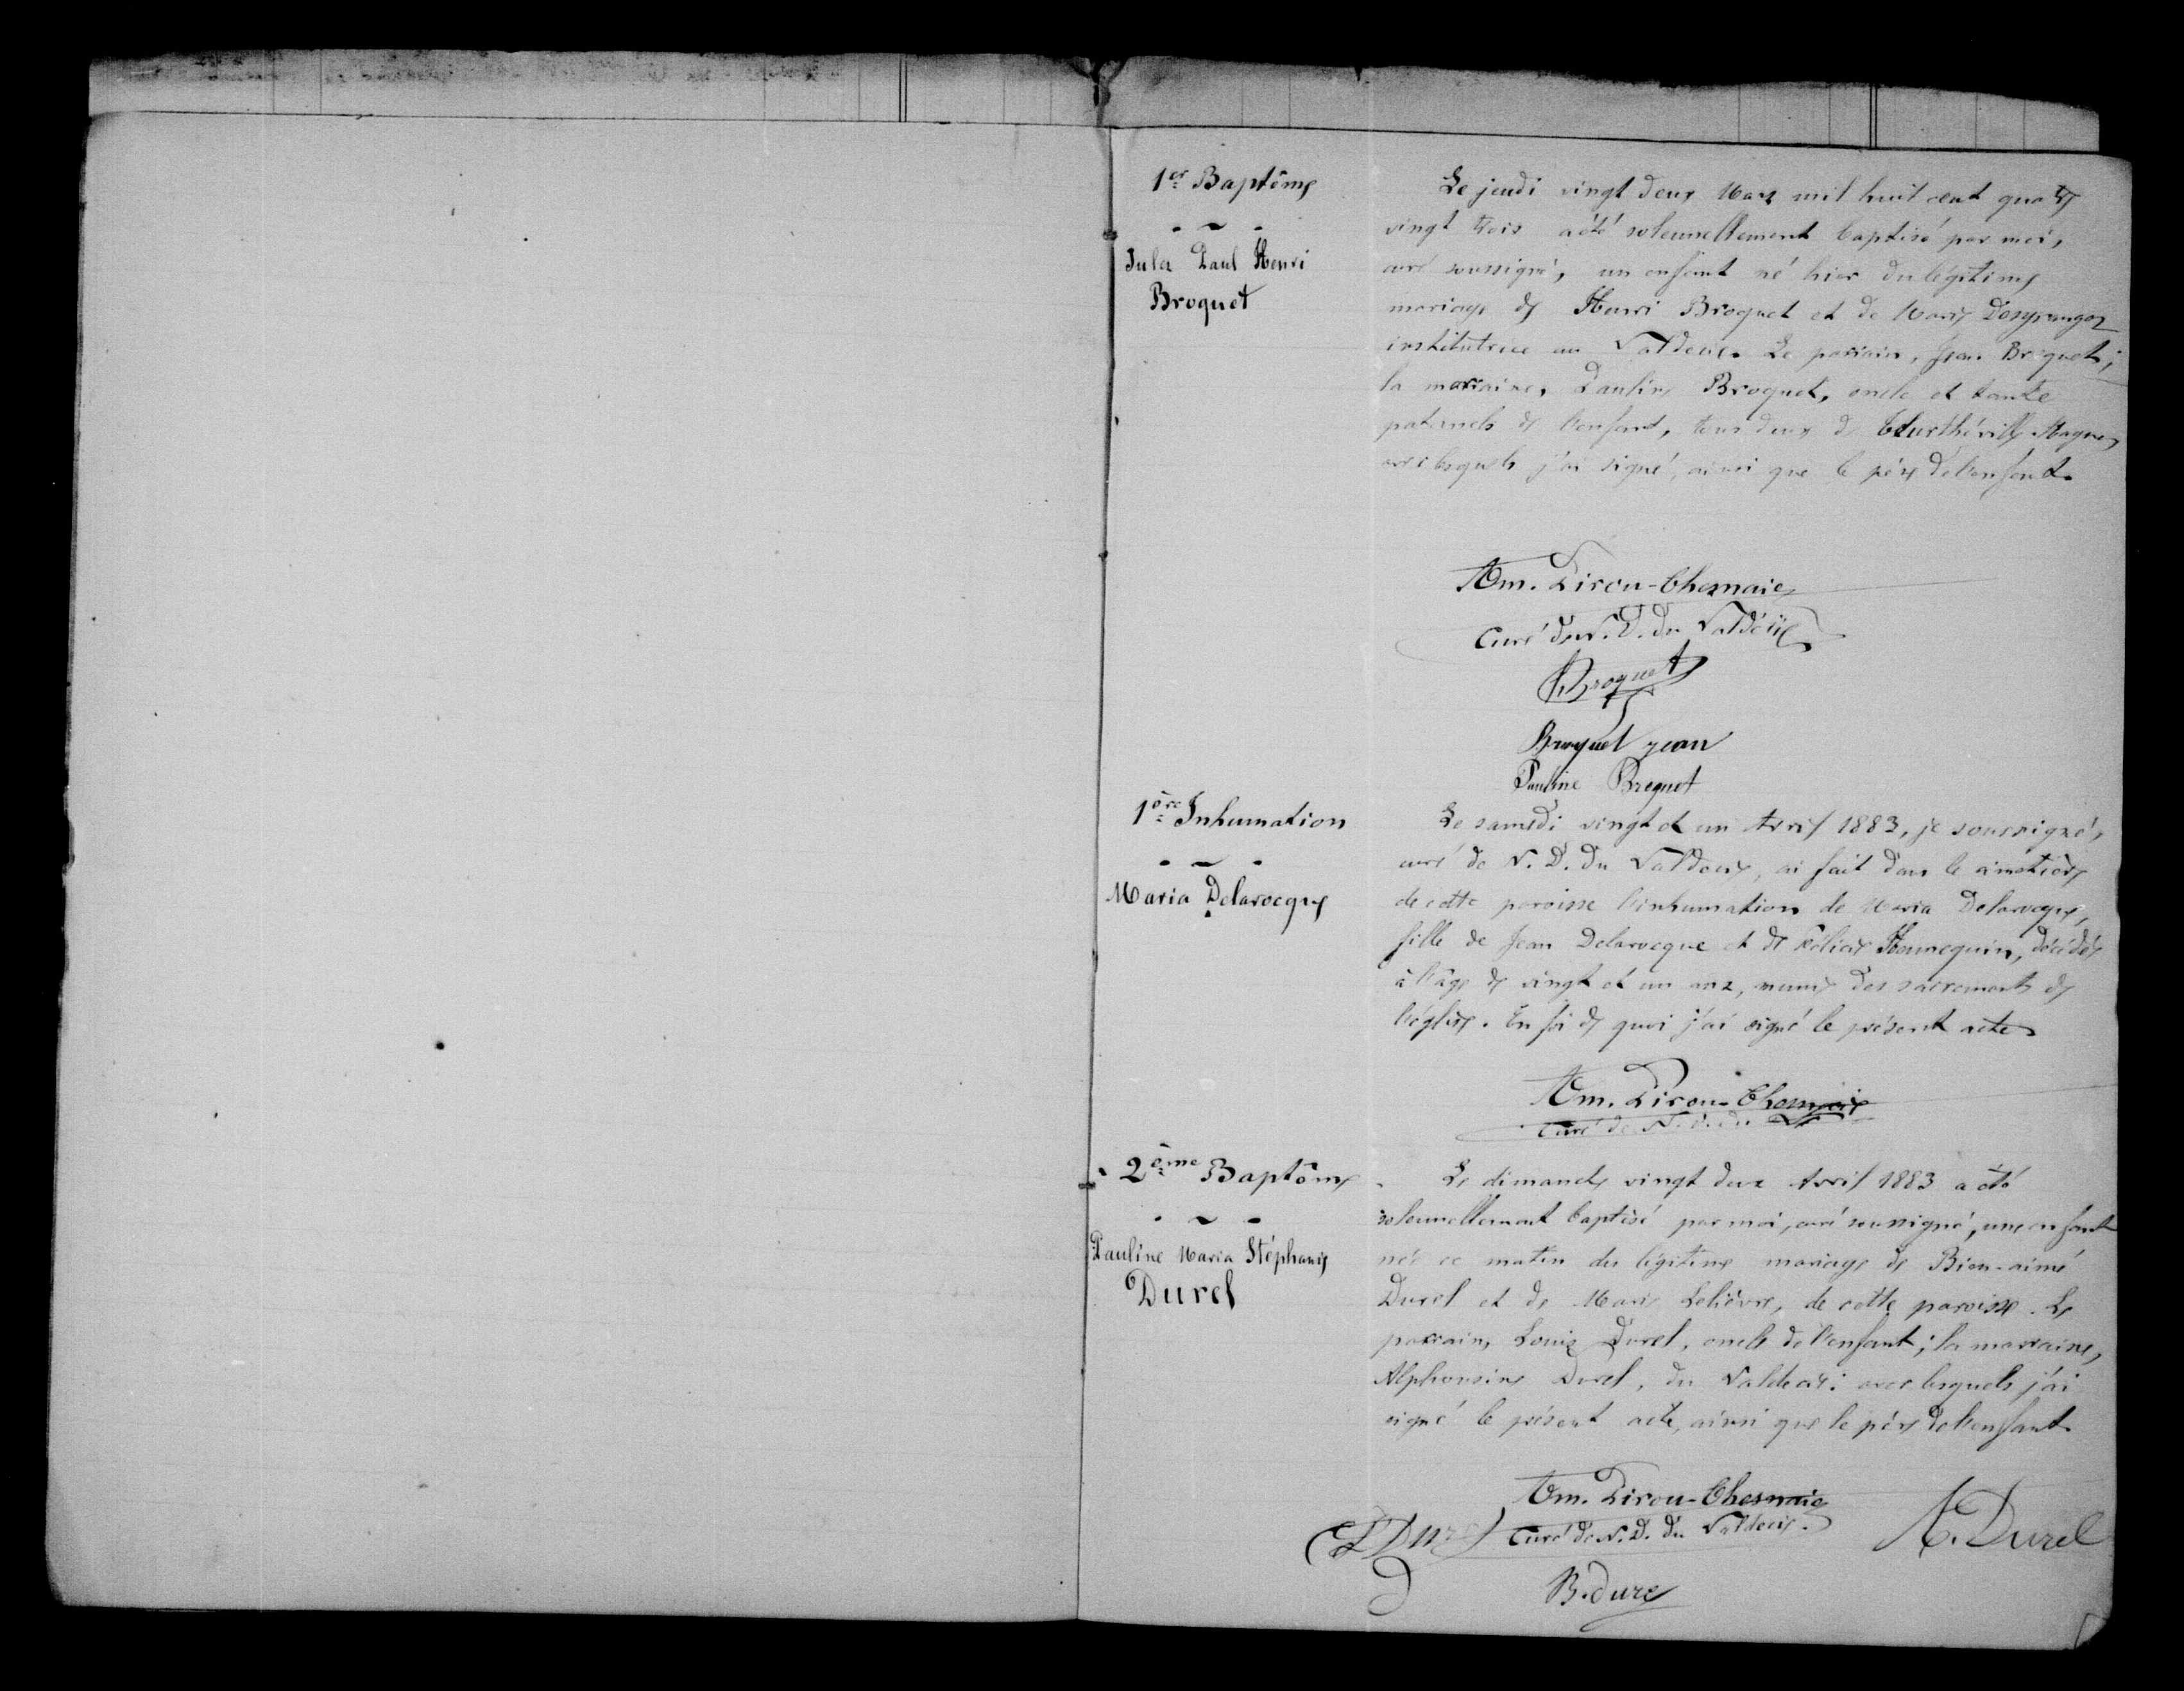 1er Baptême
Jules Paul Henri
Broquet
Le jeudi vingt deux Mars mil huit cent quatre
vingt trois a été solennellement baptisé par moi,
curé soussigné, un enfant né hier du légitime
mariage de Henri Broquet et de Marie Desgranges
institutrice au Valdécie. Le parrain, Jean Broquet;
la marraine, Pauline Broquet, oncle et tante
paternels de l'enfant, tous deux de Teurthéville-Hague,
avec lesquels j'ai signé, ainsi que le père de l'enfant.
Am. Pirou-Chesnaie
Curé de N. D. du Valdécie
Broquet
Broquet jean
Pauline Broquet
1ère Inhumation
Maria Delarocque
Le samedi vingt et un Avril 1883, je soussigné,
curé de N. D. du Valdécie, ai fait dans le cimetière
de cette paroisse l'inhumation de Maria Delarocque,
fille de Jean Delarocque et de Félicie Hennequin, décédée
à l'âge de vingt et un ans, munie des sacrements de
l'église. En foi de quoi j'ai signé le présent acte
Am. Pirou-Chesnaie
Curé de N. D. du
2ème Baptême
Pauline Maria Stéphanie
Durel
Le dimanche vingt deux Avril 1883 a été
solennellement baptisé par moi, curé soussigné, une enfant
née ce matin du légitime mariage de Bien-aimé
Durel et de Marie Lelièvre, de cette paroisse. Le
parrain, Louis Durel, oncle de l'enfant; la marraine,
Alphonsine Durel, du Valdécie: avec lesquels j'ai
signé le présent acte, ainsi que le père de l'enfant
Am. Pirou-Chesnaie
L Durel Curé de N. D. du Valdécie. A. Durel
B. durel